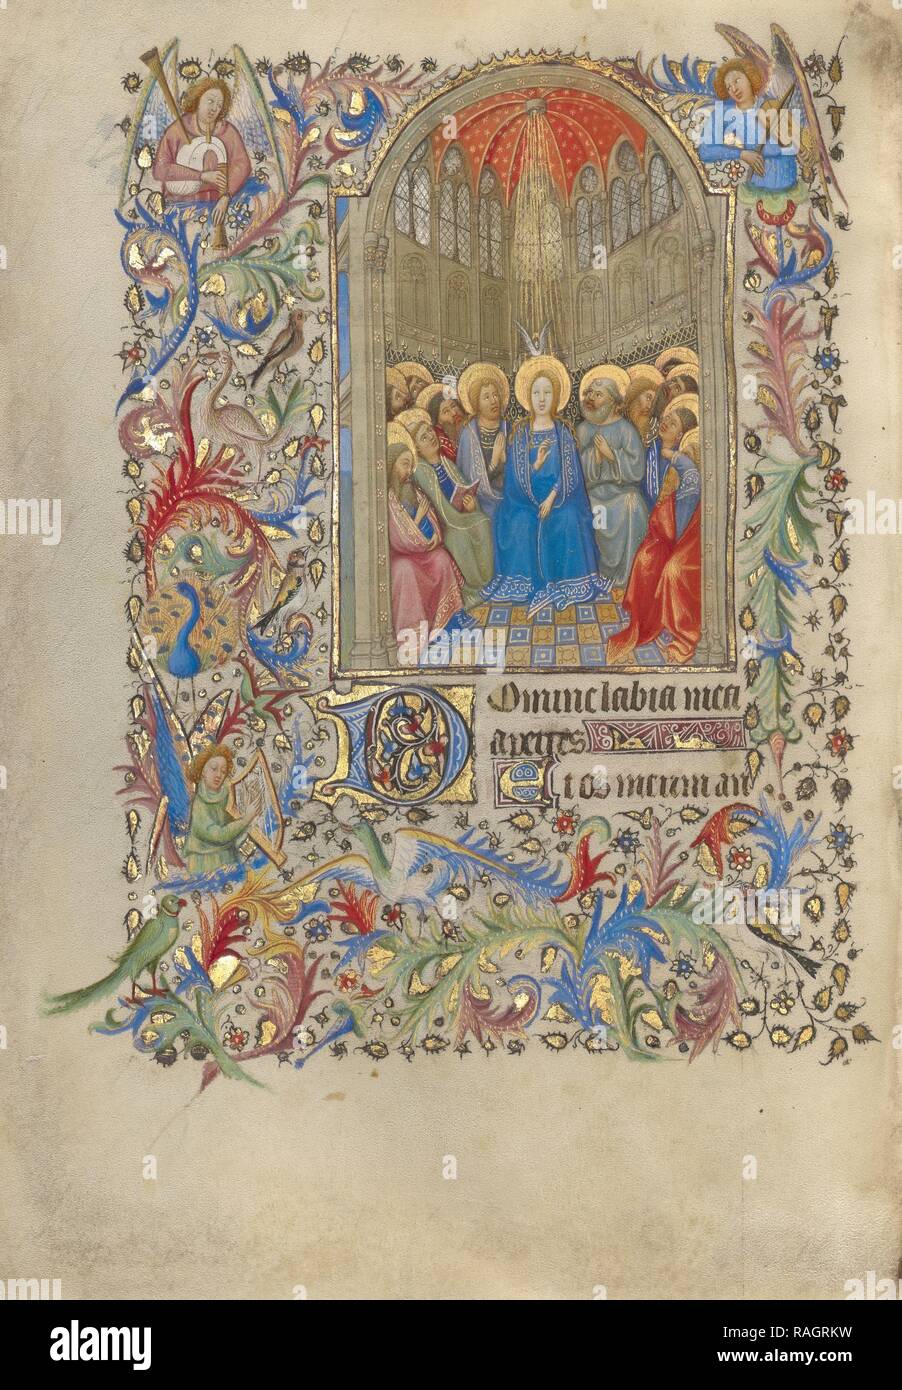 Domine labia mea
aperies
Et os meum an
alamy
Image ID: RAGRKW
www.alamy.com